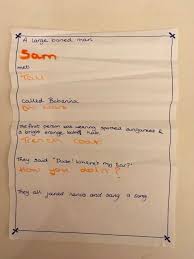 A large boned man
Sam
met
Tall
called Bohanna
The first person was wearing spotted dungarees &
a bright orange, hat.
Trench coat
They said "Dude! Where's my car?"
How you doin?
They all joined hands and sang a song